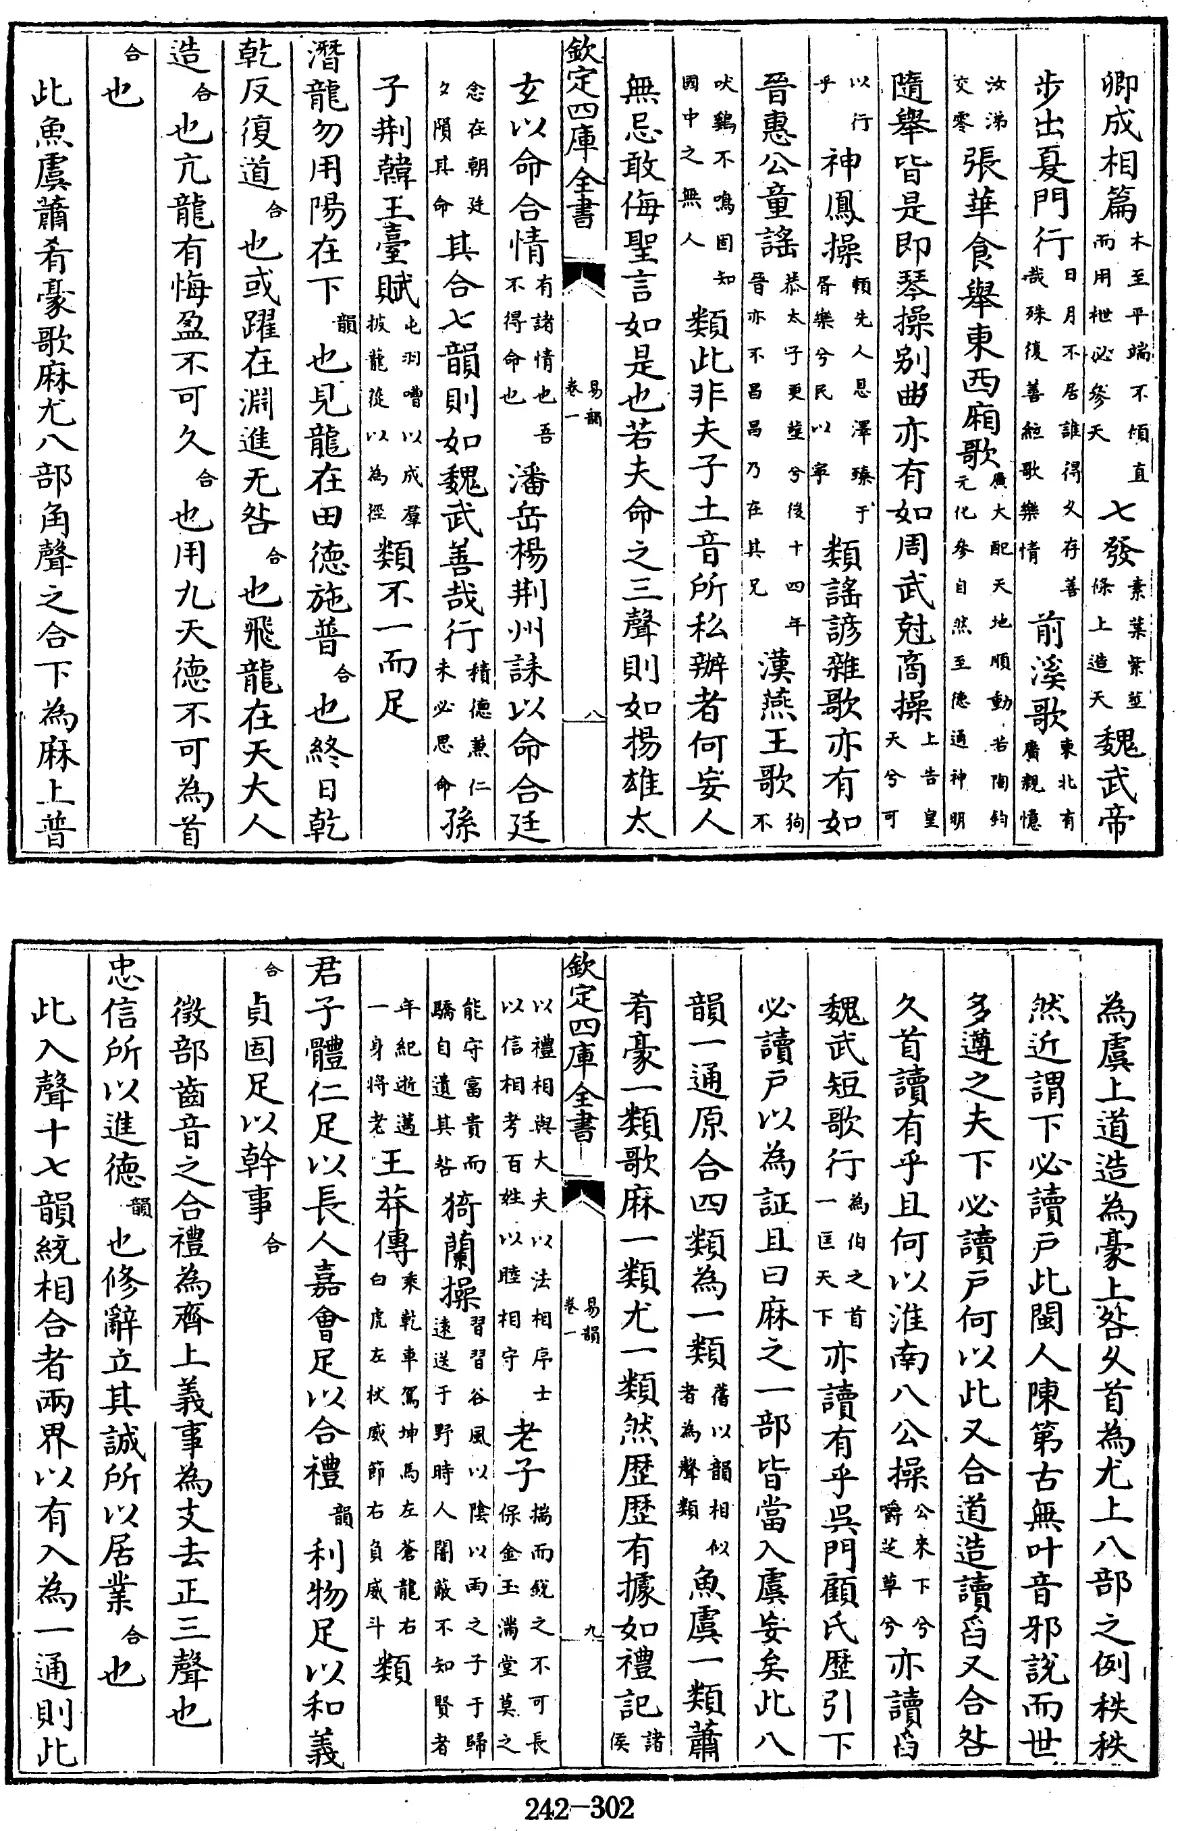 卿成相篇木至平端不傾直而用枻必參天七發素葉紫莖條上造天魏武帝
步出夏門行日月不居誰得久存善哉殊復善絃歌樂情前溪歌東北有廣觀憶
汝涕交零張華食舉東西廂歌廣大配天地順動若陶鈞元化參自然至德通神明
隋舉皆是即琴操别曲亦有如周武尅商操上告皇天兮可
以行乎神鳳操賴先人恩澤臻于胥樂兮民以寧類謡諺雜歌亦有如
晉惠公童謡恭太子更塟兮後十四年晉亦不昌昌乃在其兄漢燕王歌狗不
吠鷄不鳴固知國中之無人類此非夫子土音所私辦者何妄人
無忌敢侮聖言如是也若夫命之三聲則如揚雄太
欽定四庫全書 易韻卷一 八
玄以命合情有諸情也吾不得命也潘岳楊荆州誄以命合廷
念在朝廷夕隕其命其合七韻則如魏武善哉行積德兼仁未必思命孫
子荆韓王臺賦屯羽嘈以成羣拔龍從以為徑類不一而足
潛龍勿用陽在下韻也見龍在田德施普合也終日乾
乾反復道合也或躍在淵進无咎合也飛龍在天大人
造合也亢龍有悔盈不可久合也用九天德不可為首
合也
此魚虞蕭肴豪歌麻尤八部角聲之合下為麻上普
為虞上道造為豪上咎久首為尤上八部之例秩秩
然近謂下必讀戶此閩人陳第古無叶音邪說而世
多遵之夫下必讀戶何以此又合道造讀㕯又合咎
久首讀有乎且何以淮南八公操公來下兮嚼芝草兮亦讀㕯
魏武短歌行為伯之首一匡天下亦讀有乎吳門顧氏歷引下
必讀戶以為証且曰麻之一部皆當入虞妄矣此八
韻一通原合四類為一類舊以韻相似者為聲類魚虞一類蕭
肴豪一類歌麻一類尤一類然歷歷有據如禮記諸侯
欽定四庫全書 易韻卷一 九
以禮相與大夫以法相序士以信相考百姓以睦相守老子揣而銳之不可長保金玉滿堂莫之
能守富貴而驕自遺其咎猗蘭操習習谷風以陰以雨之子于歸遠送于野時人闇蔽不知賢者
年紀逝邁一身將老王莽傳乘乾車駕坤馬左蒼龍右白虎左杖威節右負威斗類
君子體仁足以長人嘉會足以合禮韻利物足以和義
合貞固足以幹事合
徵部齒音之合禮為齊上義事為支去正三聲也
忠信所以進德韻也修辭立其誠所以居業合也
此入聲十七韻統相合者兩界以有入為一通則此
242-302